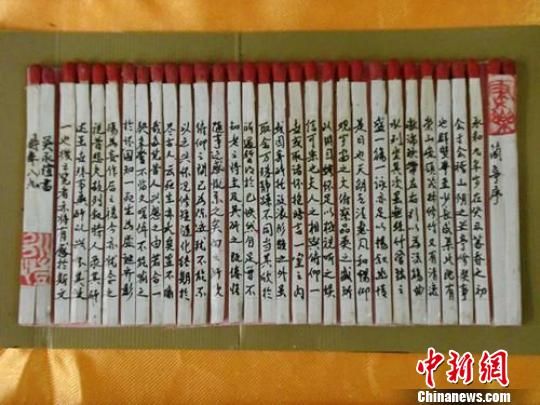 蘭亭序
永和九年歲在癸丑暮春之初
會于會稽山陰之蘭亭修禊事
也群賢畢至少長咸集此地有
崇山峻領茂林修竹又有清流
激湍映帶左右引以為流觴曲
水列坐其次雖無絲竹管弦之
盛一觴一詠亦足以暢敘幽情
是日也天朗氣清惠風和暢仰
觀宇宙之大俯察品類之盛所
以遊目騁懷足以極視聽之娛
信可樂也夫人之相與俯仰一
世或取諸懷抱悟言一室之內
或因寄所託放浪形骸之外雖
趣舍萬殊靜躁不同當其欣於
所遇暫得於己快然自足曾不
知老之將至及其所之既惓情
隨事遷感慨係之矣向之所欣
俯仰之間已為陳迹猶不能不
以之興懷況修短隨化終期於
盡古人云死生亦大矣豈不痛
哉每覽昔人興感之由若合一
契未嘗不臨文嗟悼不能喻之
於懷固知一死生為虛誕齊彭
殤為妄作後之視今亦由今之
視昔悲夫故列敘時人錄其所
述雖世殊事異所以興懷其致
一也後之覽者亦將有感於斯文
書
時年八旬
中新网
Chinanews.com